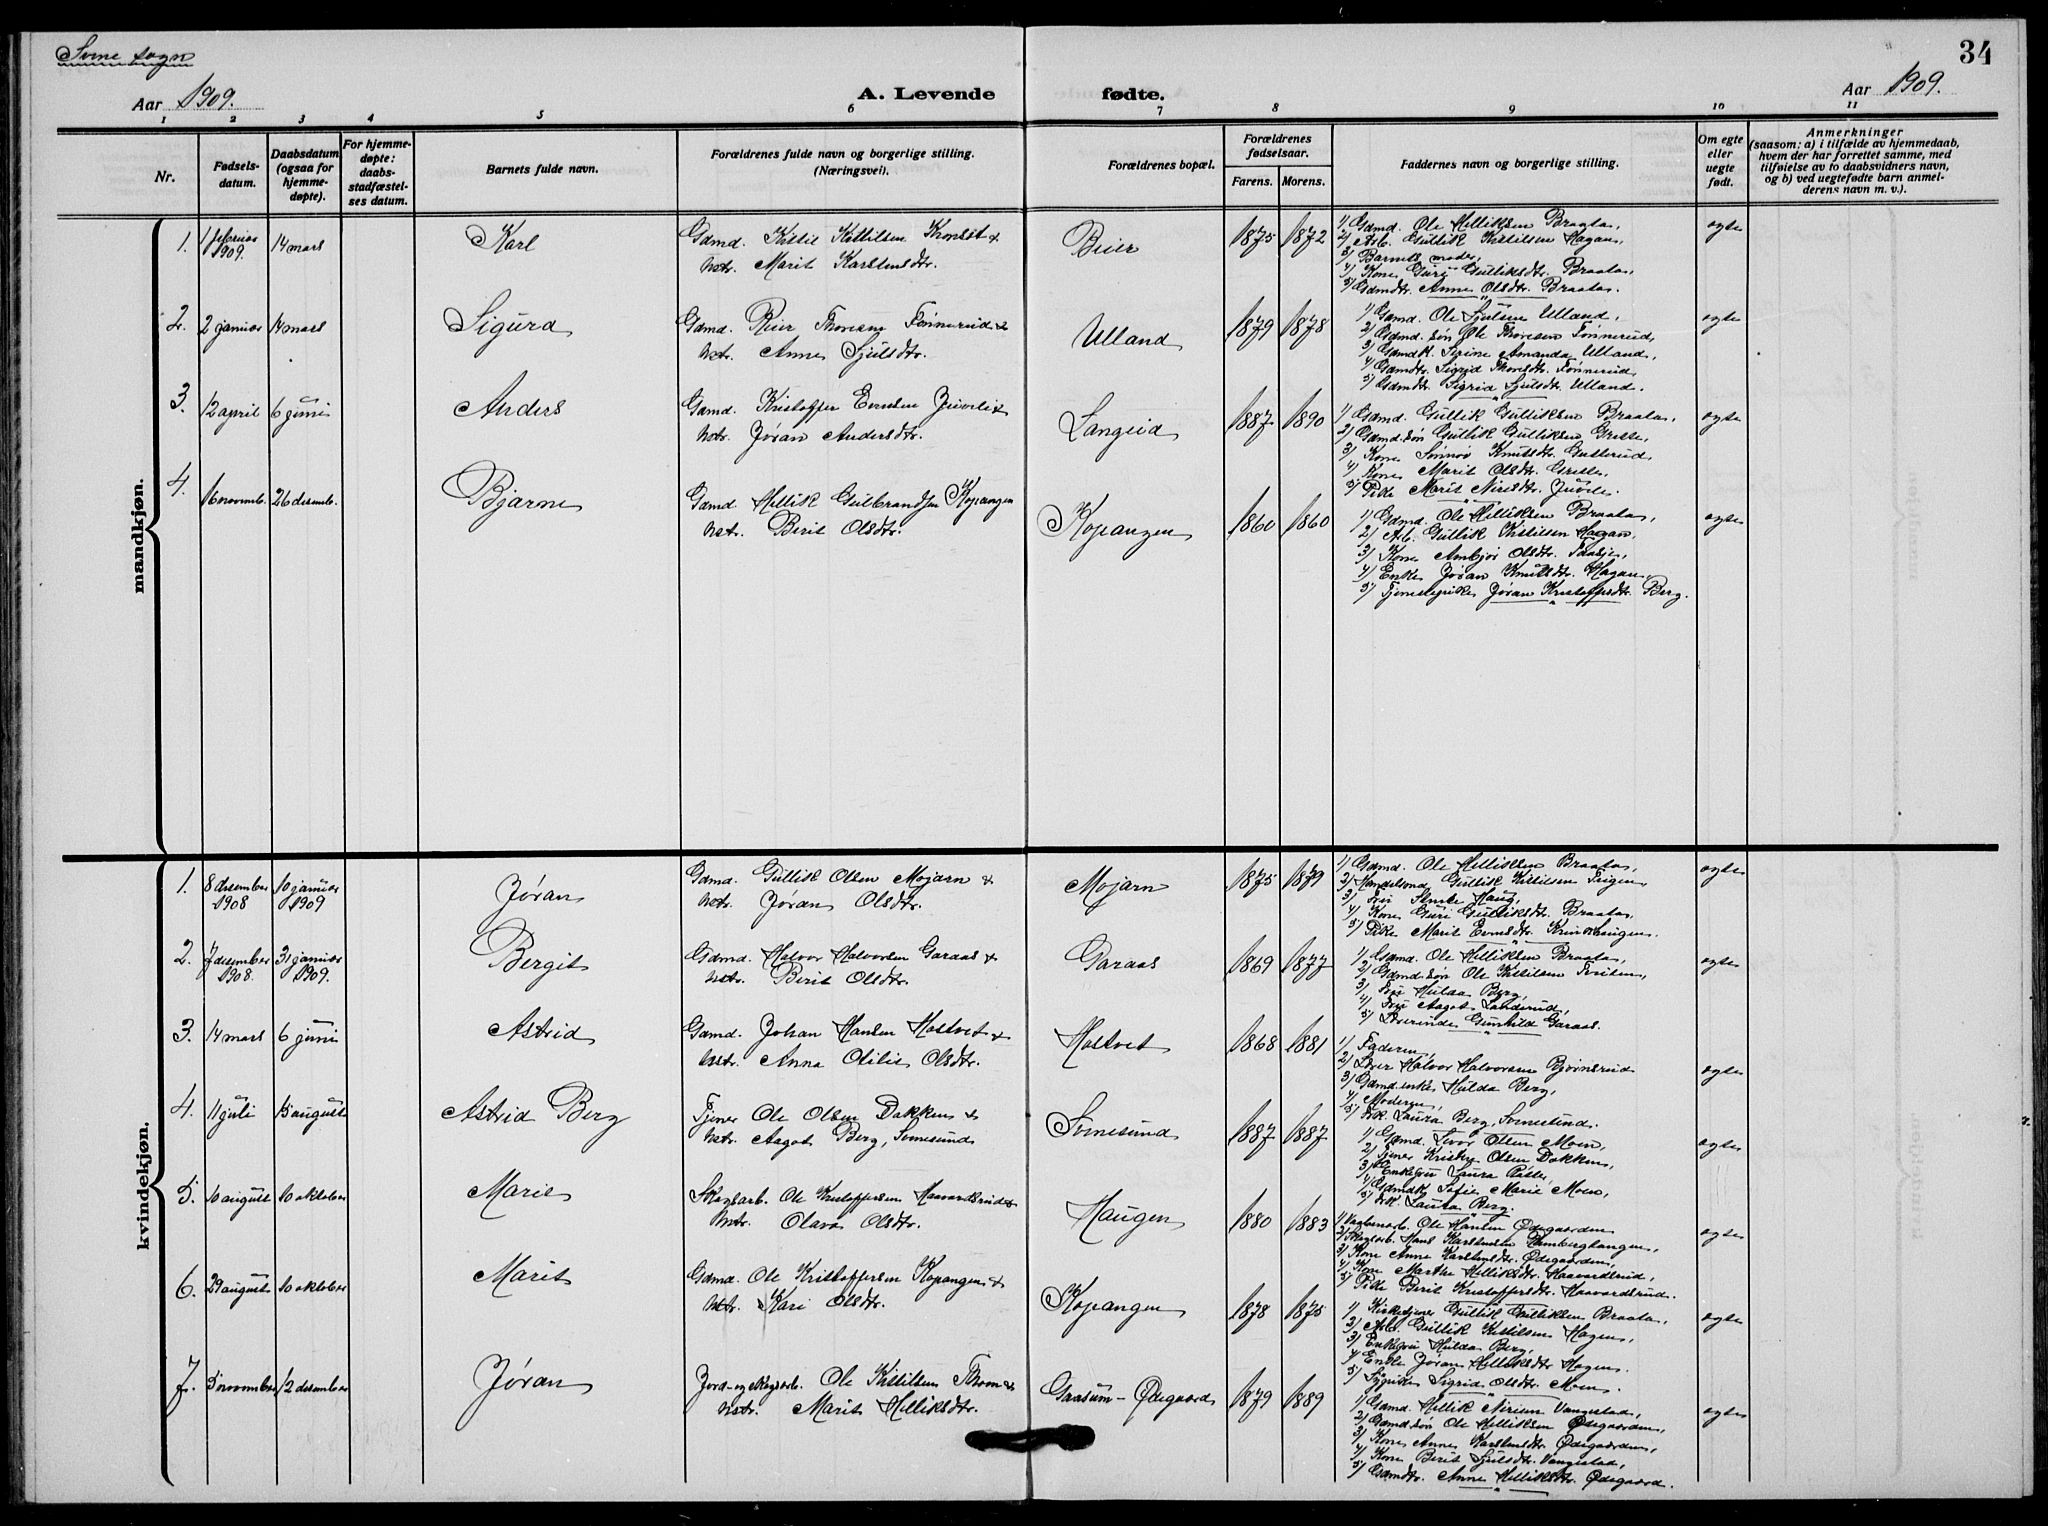 Svene sogn
34
Aar 1909.
A. Levende fødte.
Aar 1909.
1 2 3 4 5 6 7 8 9 10 11
Nr.
Fødsels-
datum.
Daabsdatum
(ogsaa for
hjemme-
døpte).
For hjemme-
døpte:
daabs-
stadfæstel-
ses datum.
Barnets fulde navn.
Forældrenes fulde navn og borgerlige stilling.
(Næringsvei).
Forældrenes bopæl.
Forældrenes
fødselsaar.
Farens. Morens.
Faddernes navn og borgerlige stilling.
Om egte
eller
uegte
født.
Anmerkninger
(saasom: a) i tilfælde av hjemmedaab,
hvem der har forrettet samme, med
tilføielse av to daabsvidners navn,
og b) ved uegtefødte barn anmel-
derens navn m. v.).
mandkjøn.
1. 1 februar 1909. 14 mars Karl
Gdmd. Kittil Kittilsen
hstr. Marit Karstensdtr.
Beier 1875 1872
1) Gdmd. Ole Helliksen Braata,
2) Arb. Gullik Kittilsen Hagan,
3) Barnets moder,
4) Kone Guri Gulliksdtr. Braata,
5) Gdmdtr. Anne Olsdtr. Braata.
egte
2. 2 januar 14 mars Sigurd
Gdmd. Reier Thoresen Tønnerud &
hstr. Anne Sjulsdtr.
Ulland 1879 1878
1) Gdmd. Ole Sjulsen Ulland,
2) Gdmd.søn Ole Thoresen Tønnerud,
3) Gdmdk. Serine Amanda Ulland,
4) Gdmdtr. Sigrid Thoresdtr. Tønnerud
5) Gdmdtr. Sigrid Sjulsdtr. Ulland.
egte
3. 12 april 6 juni Anders
Gdmd. Kristoffer Evensen Juveli &
hstr. Jøran Andersdtr.
Langeid 1887 1890
1) Gdmd. Gullik Gulliksen Braata,
2) Gdmd.søn Gullik Gulliksen Grette,
3) Kone Sønnov Knutsdtr. Gutterud,
4) Kone Marit Olsdtr. Grette,
5) Pike Marit Nirisdtr. Juvele.
egte
4. 16 novemb. 26 desemb. Bjarne
Gdmd. Hellik Gulbrandsen Kopangen
hstr. Berit Olsdtr.
Kopangen 1860 1860
1) Gdmd. Ole Helliksen Braata,
2) Arb. Gullik Kittilsen Hagan,
3) Kone Ambjør Olsdtr.
4) Enke Jøran Knutsdtr. Hagan,
5) Tjenestepike Jøran Kristoffersdtr. Berg.
egte
kvindekjøn.
1. 8 desember 1908 10 januar 1909 Jøran
Gdmd. Gullik Olsen Mojarn &
hstr. Jøran Olsdtr.
Mojarn 1875 1879
1) Gdmd. Ole Helliksen Braata,
2) Handelsmd. Gullik Kittilsen Teigen,
3) Fru Haug,
4) Kone Guri Gulliksdtr. Braata,
5) Pike Marit Evensdtr.
egte
2. 7 desember 1908. 31 januar 1909. Bergit
Gdmd. Halvor Halvorsen Garaas &
hstr. Berit Olsdtr.
Garaas 1869 1877
1) Gdmd. Ole Helliksen Braata,
2) Gdmd.søn Ole Kittilsen
3) Fru Hulda Berg,
4) Fru Aagot Landerud,
5) Lærerinde Gunhild Garaas.
egte
3. 14 mars 6 juni Astrid
Gdmd. Johan Hansen Hostvet &
hstr. Anna Otilie Olsdtr.
Hostvet 1868 1881
1) Faderen,
2) Lærer Halvor Halvorsen Bjørnsrud
3) Gdmd.enke Hulda Berg,
4) Moderen,
5) Frk. Laura Berg, Svenesund.
egte
4. 11 juli 15 august Astrid Berg
Tjener Ole Olsen Dokken &
hstr. Aagot Berg, Svenesund
Svenesund 1887 1887
1) Gdmd. Svor Olsen Moen,
2) Tjener Kristen Olsen Dokken,
3) Enkefru Laura
4) Gdmdk. Sofie Marie Moen,
5) Frk. Laura Berg.
egte
5. 10 august 10 oktober Marie
Skogsarb. Ole Kristoffersen Haavardsrud &
hstr. Olava Olsdtr.
Haugen 1880 1883
1) Ole Hansen Ødegaarden
2) Skogsarb. Hans Karstensen
3) Kone Anne Karstensdtr. Ødegaarden,
4) Kone Marthe Helliksdtr. Haavardsrud,
5) Pike Berit Kristoffersdtr. Haavardsrud.
egte
6. 29 august 10 oktober Marit
Gdmd. Ole Kristoffersen Kopangen &
hstr. Kari Olsdtr.
Kopangen 1878 1875
1) Kirketjener Gullik Gulliksen Braata,
2) Arb. Gullik Kittilsen Hagen,
3) Enkefru Hulda Berg,
4) Enke Jøran Helliksdtr. Hagen.
5) Sigrid Olsdtr. Moen.
egte
7. 5 november 12 desember Jøran
Jord- og skogsarb. Ole Kittilsen Thom &
hstr. Marit Helliksdtr.
Gaasum - Ødegaard 1879 1889
1) Gdmd. Hellik Nirisen Vangestad,
2) Gdmd.søn Ole Helliksen Ødegaarden,
3) Kone Anne Karstensdtr. Ødegaarden,
4) Kone Berit Sjulsdtr. Vangestad,
5) Gdmdtr. Anne Helliksdtr. Ødegaard.
egte